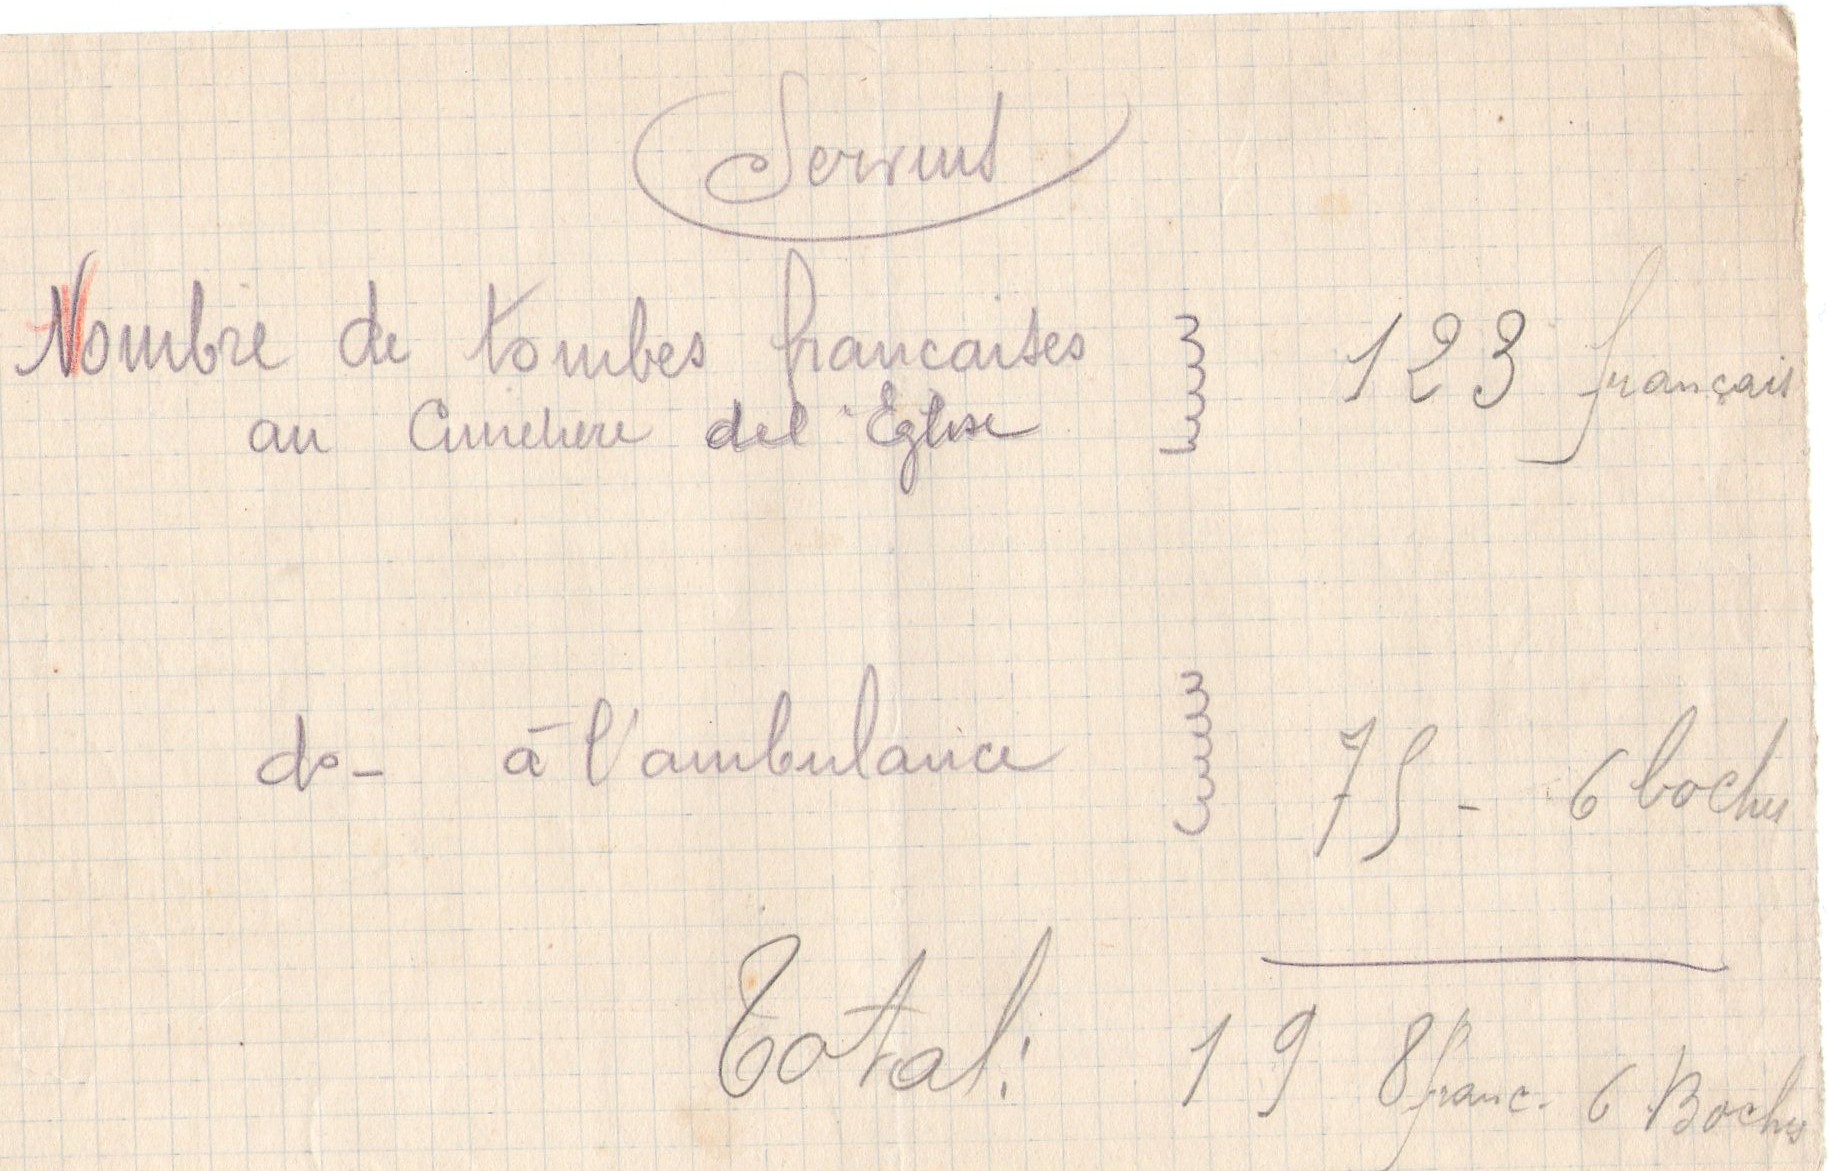 Servins
Nombre de tombes francaises 123 français
au Cimetiere de l'Eglise
do- à l'ambulance 75 - 6 boches
Total: 198 franc. 6 Boches